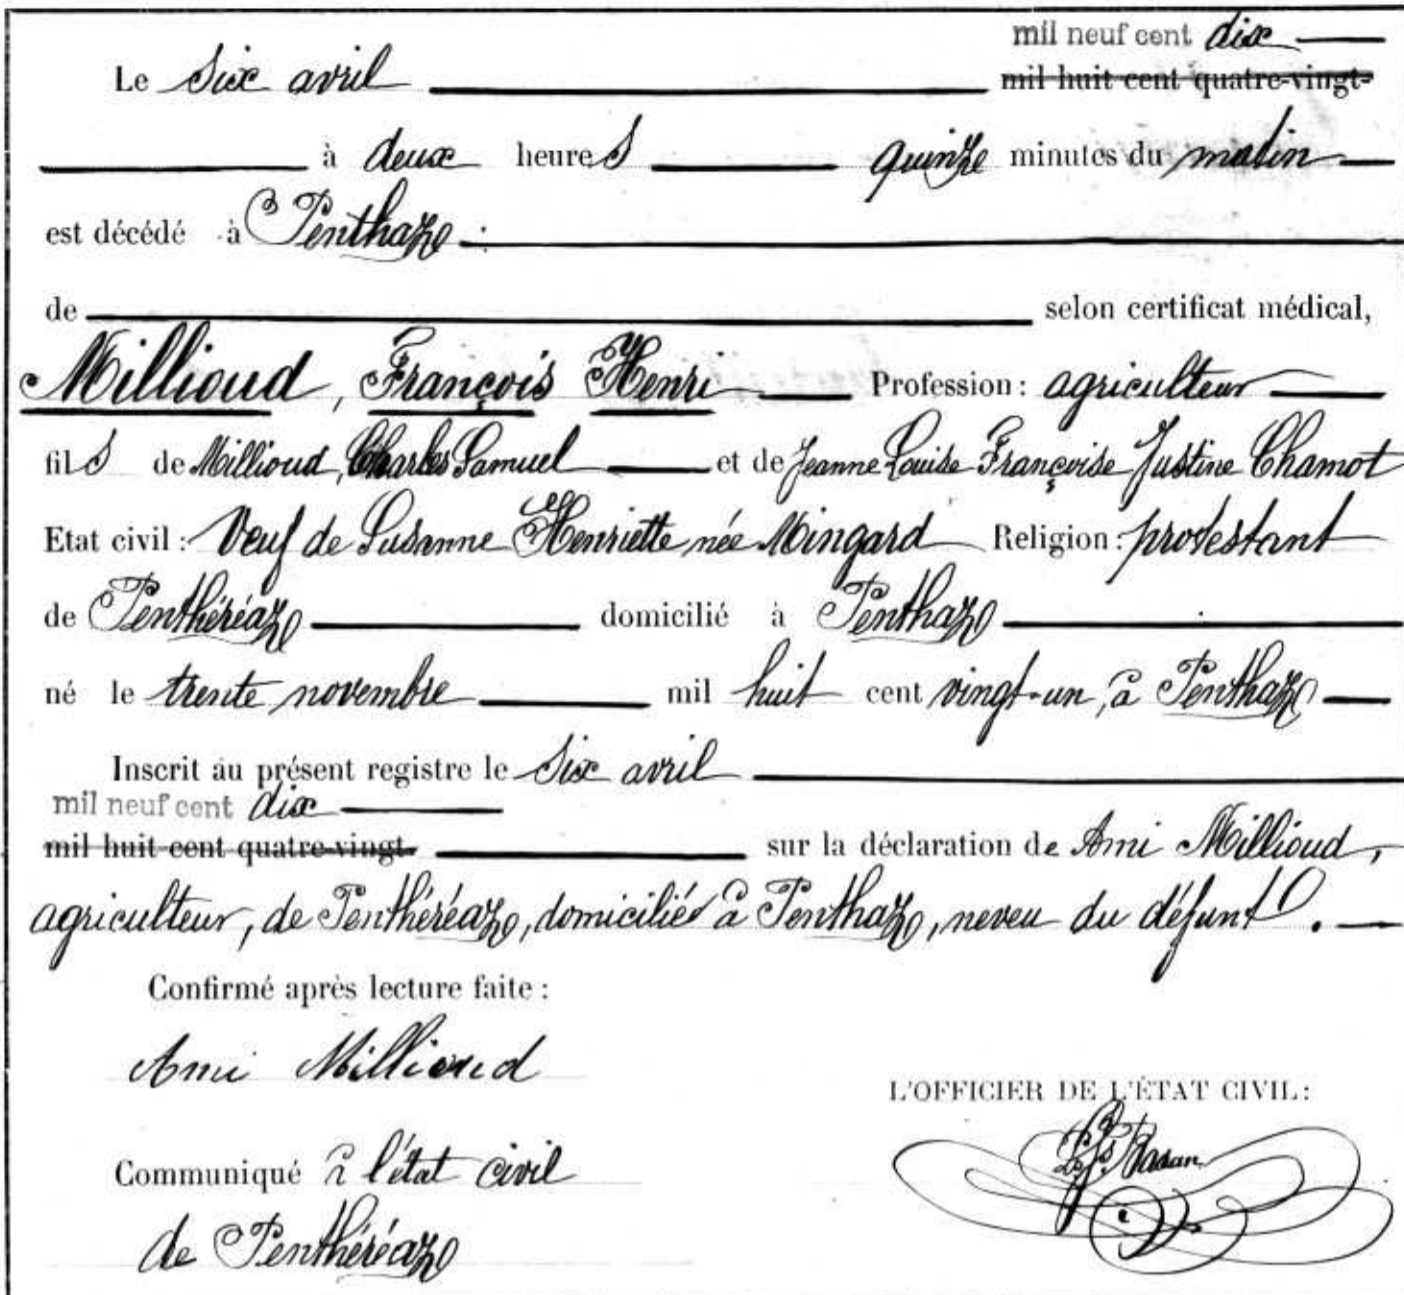 mil neuf cent dix
Le six avril mil huit cent quatre-vingt-
à deux heures quinze minutes du matin
est décédé à Penthaz
de selon certificat médical,
Millioud, François Henri Profession: agriculteur
fils de Millioud, Charles Samuel et de Jeanne Louise Françoise Justine Chamot
Etat civil: Veuf de Susanne Henriette née Mingard Religion: protestant
de Penthéréaz domicilié à Penthaz
né le trente novembre mil huit cent vingt-un, à Penthaz
Inscrit au présent registre le six avril
mil neuf cent dix
mil huit cent quatre-vingt- sur la déclaration de Ami Millioud,
agriculteur, de Penthéréaz, domicilié à Penthaz, neveu du défunt.
Confirmé après lecture faite:
Ami Millioud
L'OFFICIER DE L'ÉTAT CIVIL:
Communiqué à l'état civil
de Penthéréaz